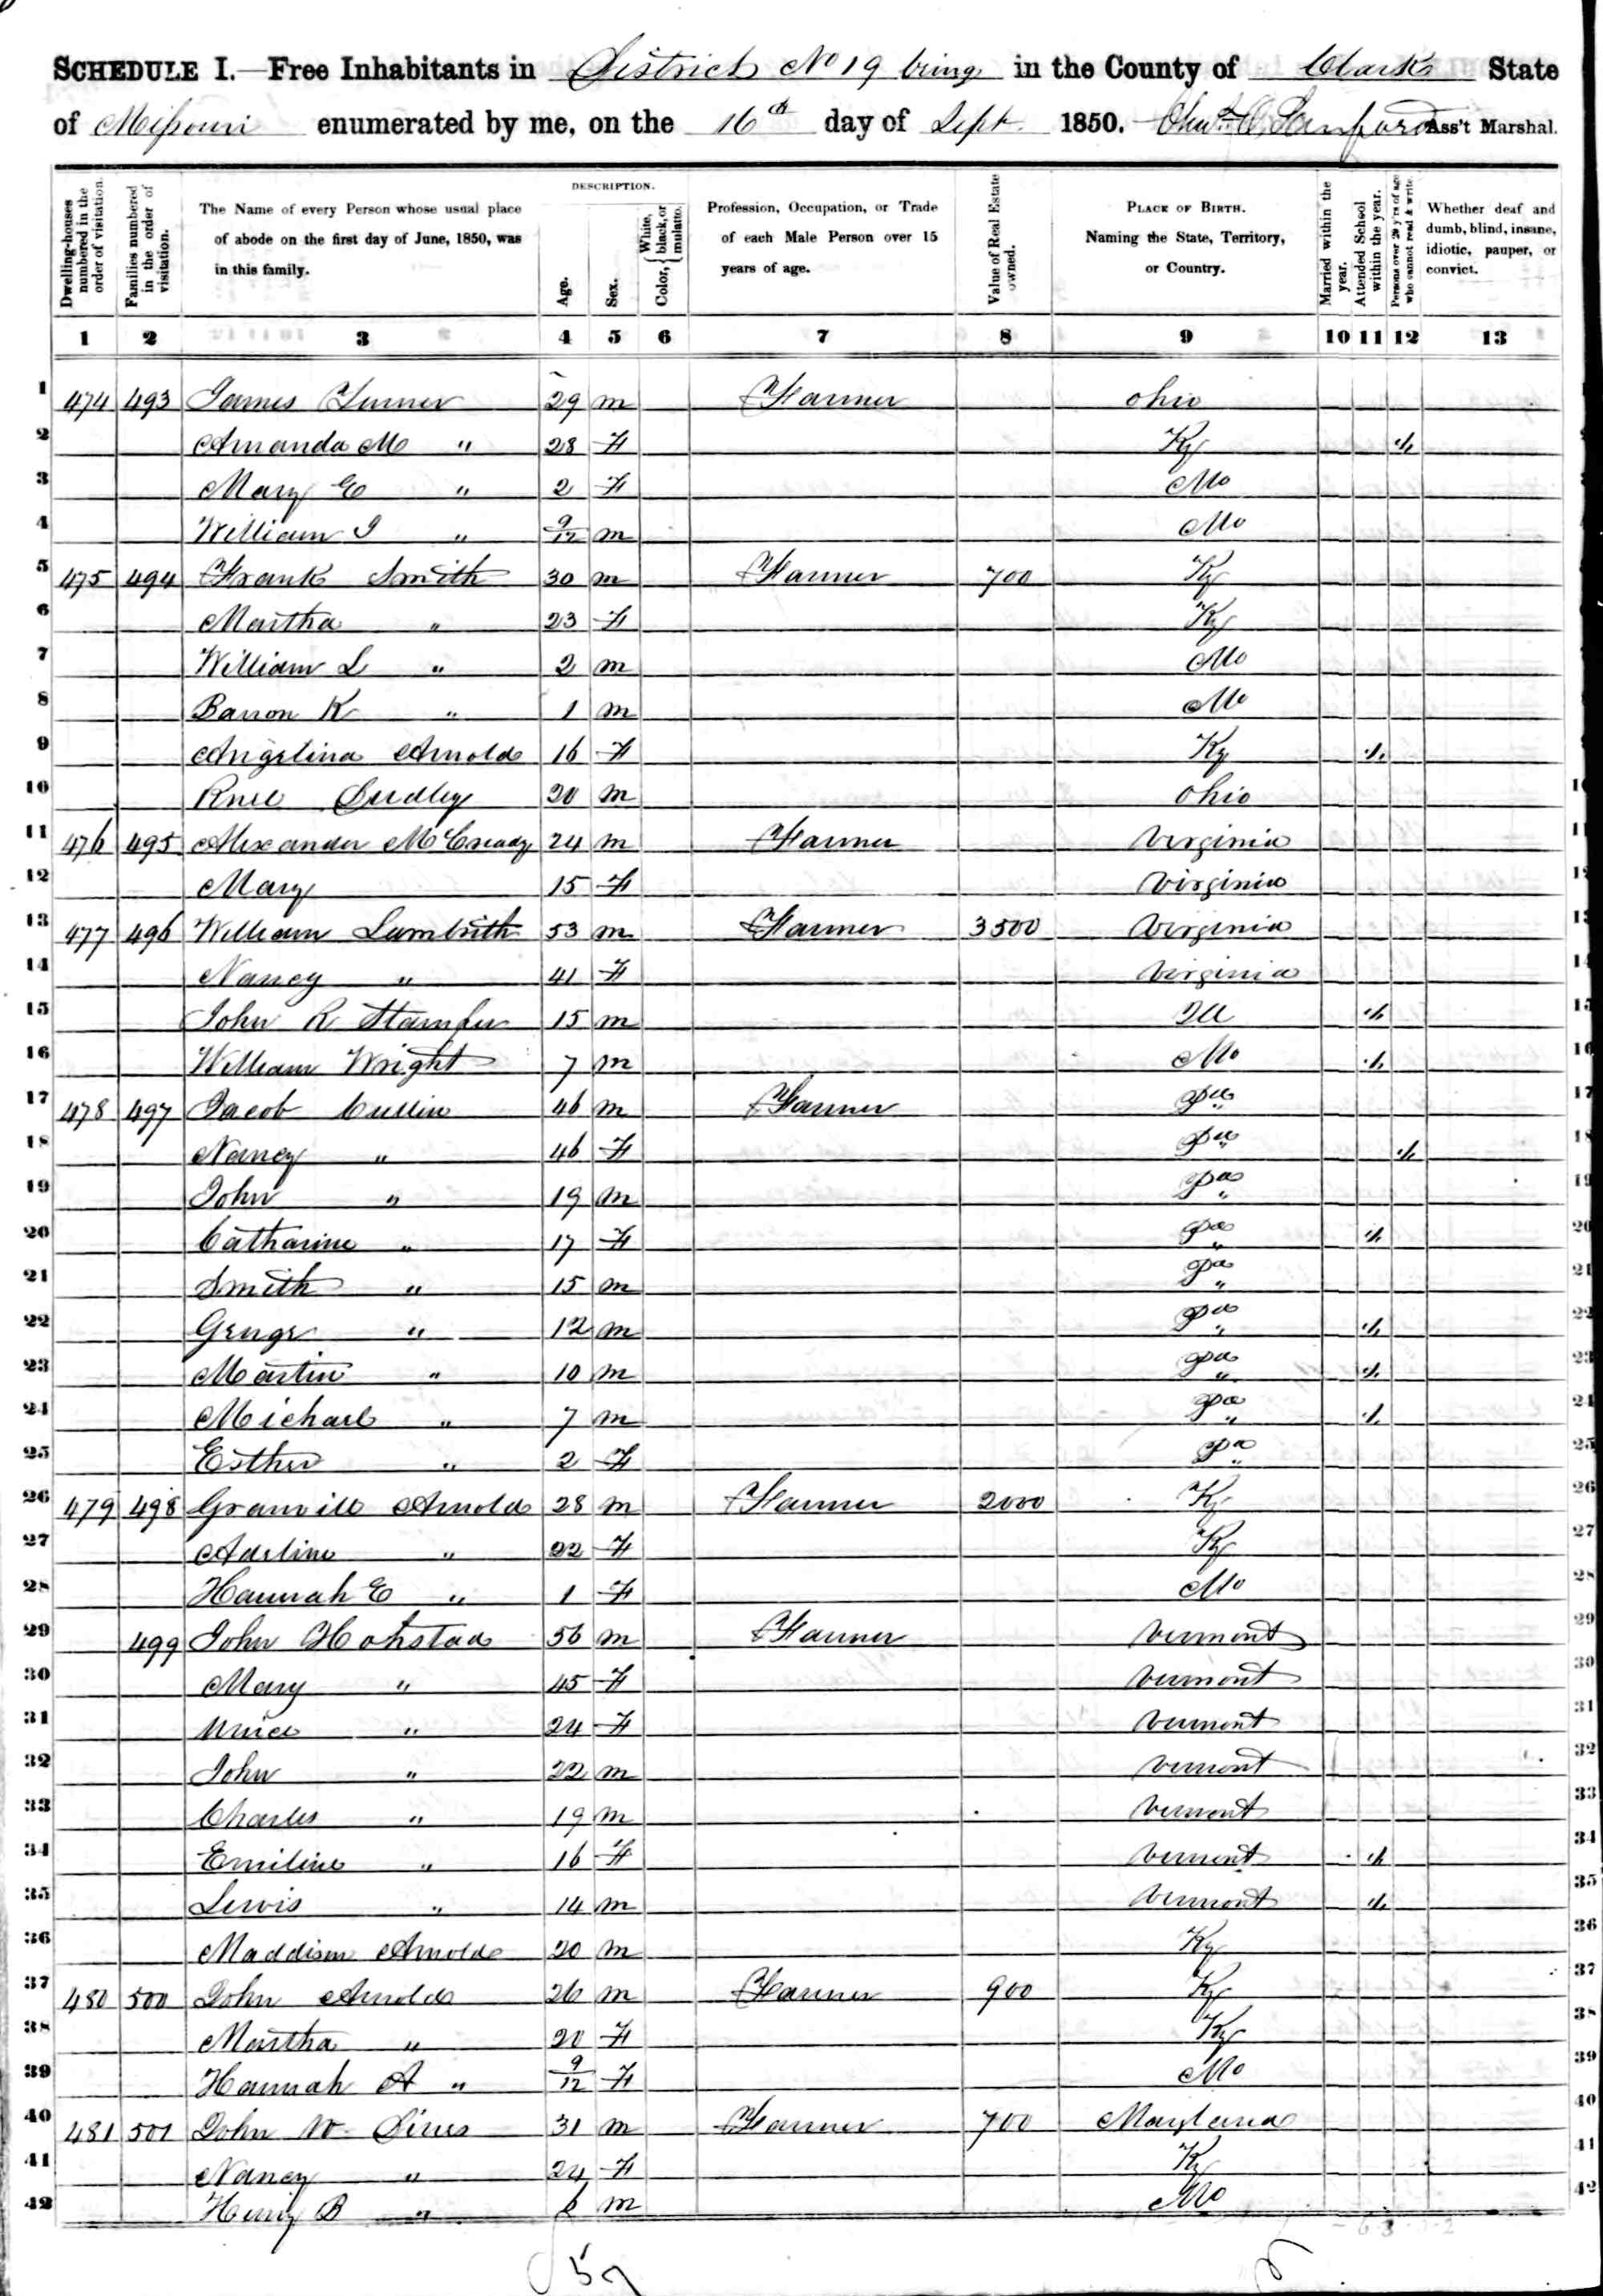 SCHEDULE I.—Free Inhabitants in District No 19 being in the County of Clark State
of Missouri enumerated by me, on the 16th day of Sept. 1850. Sanford Ass't Marshal.
DESCRIPTION.
Dwelling-houses numbered in the order of visitation.
Families numbered in the order of visitation.
The Name of every Person whose usual place of abode on the first day of June, 1850, was in this family.
Age.
Sex.
Color, { White, black, or mulatto.
Profession, Occupation, or Trade of each Male Person over 15 years of age.
Value of Real Estate owned.
PLACE OF BIRTH. Naming the State, Territory, or Country.
Married within the year.
Attended School within the year.
Persons over 20 y'rs of age who cannot read & write.
Whether deaf and dumb, blind, insane, idiotic, pauper, or convict.
1 2 3 4 5 6 7 8 9 10 11 12 13
1 474 493 James Turner 29 m Farmer Ohio
2 Amanda M " 28 F Ky /
3 Mary E " 2 F Mo
4 William J " 9/12 m Mo
5 475 494 Frank Smith 30 m Farmer 700 Ky
6 Martha " 23 F Ky
7 William L " 2 m Mo
8 Barron K " 1 m Mo
9 Angelina Arnold 16 F Ky /
10 Dudley 20 m Ohio 10
11 476 495 Alexander McCready 24 m Farmer Virginia 11
12 Mary 15 F Virginia 12
13 477 496 William Lambirth 53 m Farmer 3500 Virginia 13
14 Nancy " 41 F Virginia 14
15 John R Stamper 15 m / 15
16 William Wright 7 m Mo / 16
17 478 497 Jacob Cullin 46 m Farmer Pa 17
18 Nancy " 46 F Pa / 18
19 John " 19 m Pa 19
20 Catharine " 17 F Pa / 20
21 Smith " 15 m Pa 21
22 George " 12 m Pa / 22
23 Martin " 10 m Pa / 23
24 Michael " 7 m Pa / 24
25 Esther " 2 F Pa 25
26 479 498 Granvill Arnold 28 m Farmer 2000 Ky 26
27 Adeline " 22 F Ky 27
28 Hannah E " 1 F Mo 28
29 499 John 56 m Farmer Vermont 29
30 Mary " 45 F Vermont 30
31 Unice " 24 F Vermont 31
32 John " 22 m Vermont 32
33 Charles " 19 m Vermont 33
34 Emiline " 16 F Vermont / 34
35 Lewis " 14 m Vermont / 35
36 Maddison Arnold 20 m Ky 36
37 480 500 John Arnold 26 m Farmer 900 Ky 37
38 Martha " 20 F Ky 38
39 Hannah A " 9/12 F Mo 39
40 481 501 John W. Sines 31 m Farmer 700 Maryland 40
41 Nancy " 24 F Ky 41
42 Henry B " 6 m Mo 42